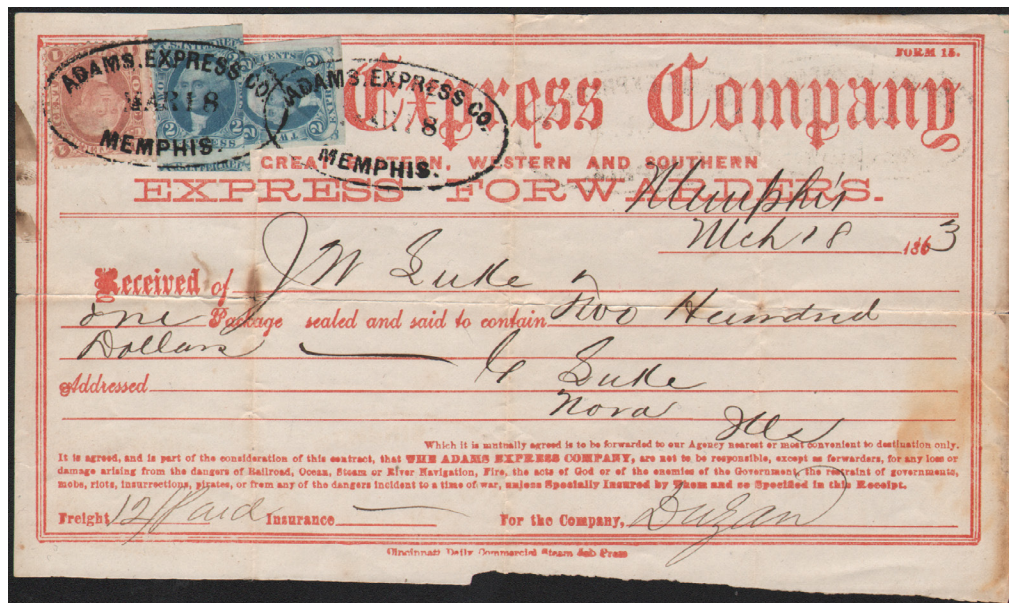 FORM 15.
ADAMS. EXPRESS CO.
MAR 18
MEMPHIS.
ADAMS. EXPRESS CO.
MAR 18
MEMPHIS.
Express Company
GREAT EASTERN, WESTERN AND SOUTHERN
EXPRESS FORWARDERS.
Memphis
Mch 18 1863
Received of J W Luke
one Package sealed and said to contain Two Hundred
Dollars
Addressed Luke
Nora
Ills
Which it is mutually agreed is to be forwarded to our Agency nearest or most convenient to destination only.
It is agreed, and is part of the consideration of this contract, that THE ADAMS EXPRESS COMPANY, are not to be responsible, except as forwarders, for any loss or
damage arising from the dangers of Railroad, Ocean, Steam or River Navigation, Fire, the acts of God or of the enemies of the Government, the restraint of governments,
mobs, riots, insurrections, pirates, or from any of the dangers incident to a time of war, unless Specially Insured by Them and so Specified in this Receipt.
Freight 12/ Paid Insurance For the Company, Dugan
Cincinnati Daily Commercial Steam Job Press